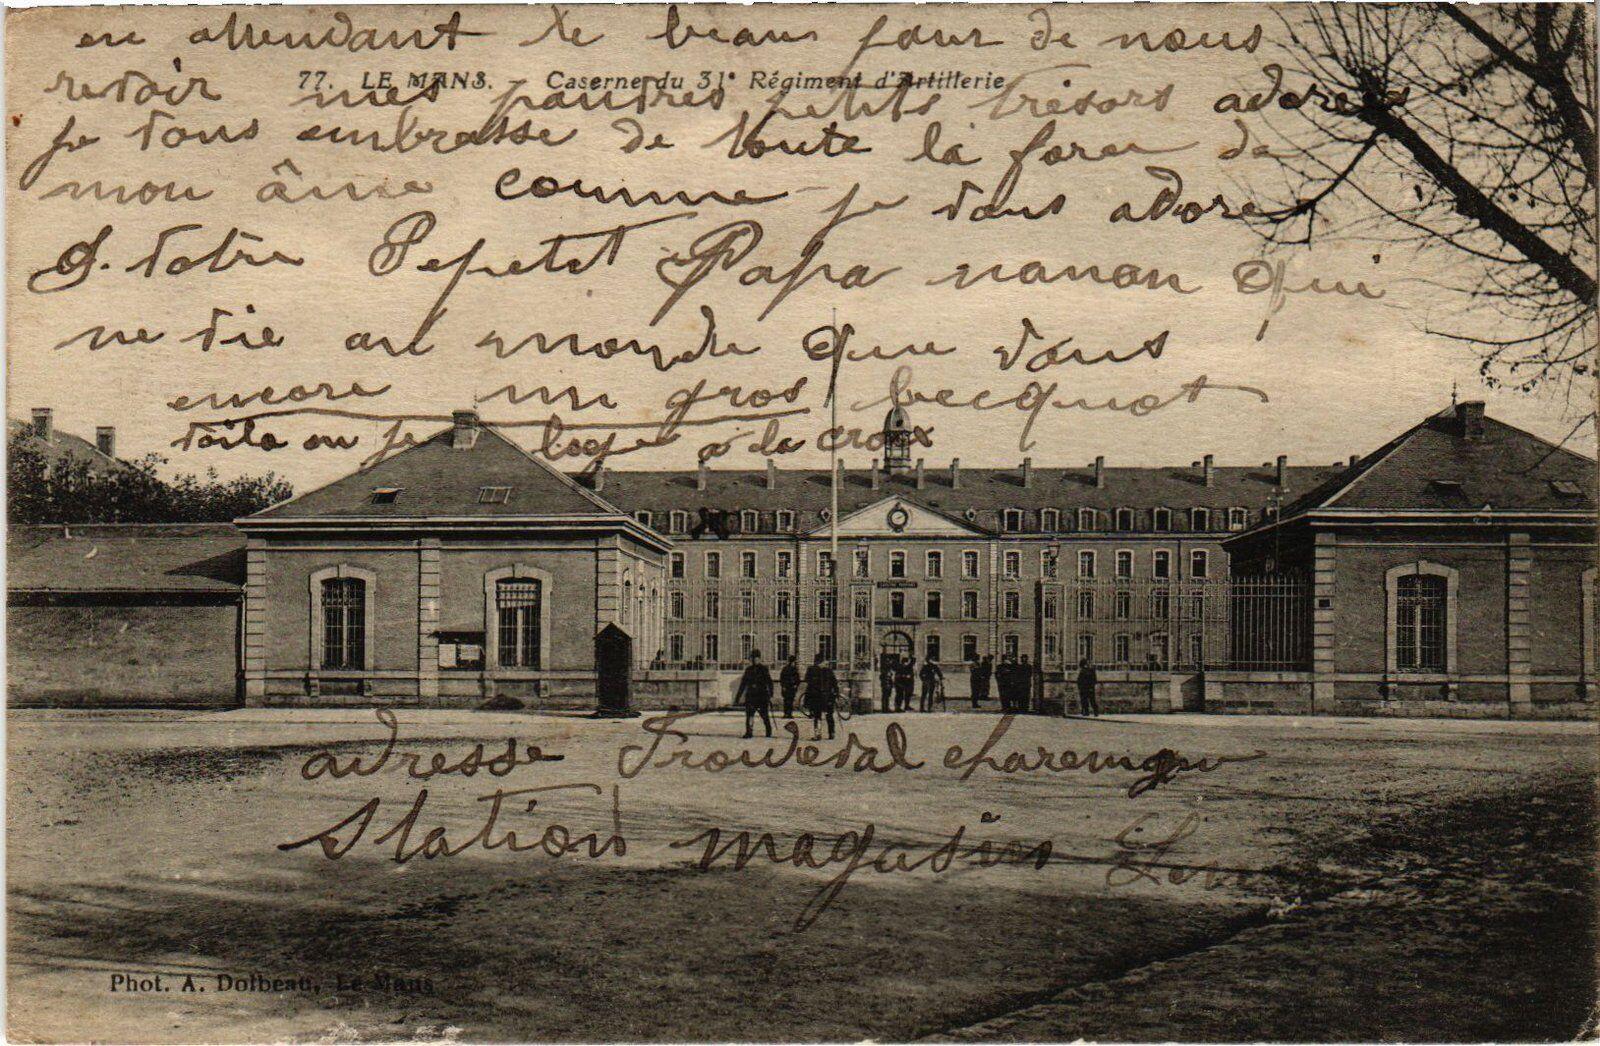 en attendant le beau jour de nous
77. LE MANS. - Caserne du 31e Régiment d'Artillerie
revoir mes pauvres petits trésors adorés
je vous embrasse de toute la force de
mon âme comme je vous adore
votre Pepetit Papa nanan qui
ne vie au monde que vous
encore un gros becquot
voila ou je loge à la croix
adresse
Station magasin
Phot. A. Dolbeau, Le Mans